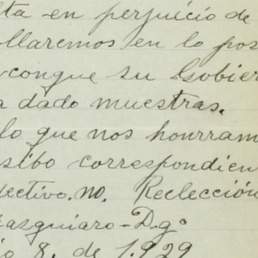 lta en perjuicio de
ollaremos en lo pos
congue su Gobier
a dado muestras.
lo que nos hourram
sibo correspondien
lectivo. no. Reelección
asguiaro-D.gº
io 8. de 1.929